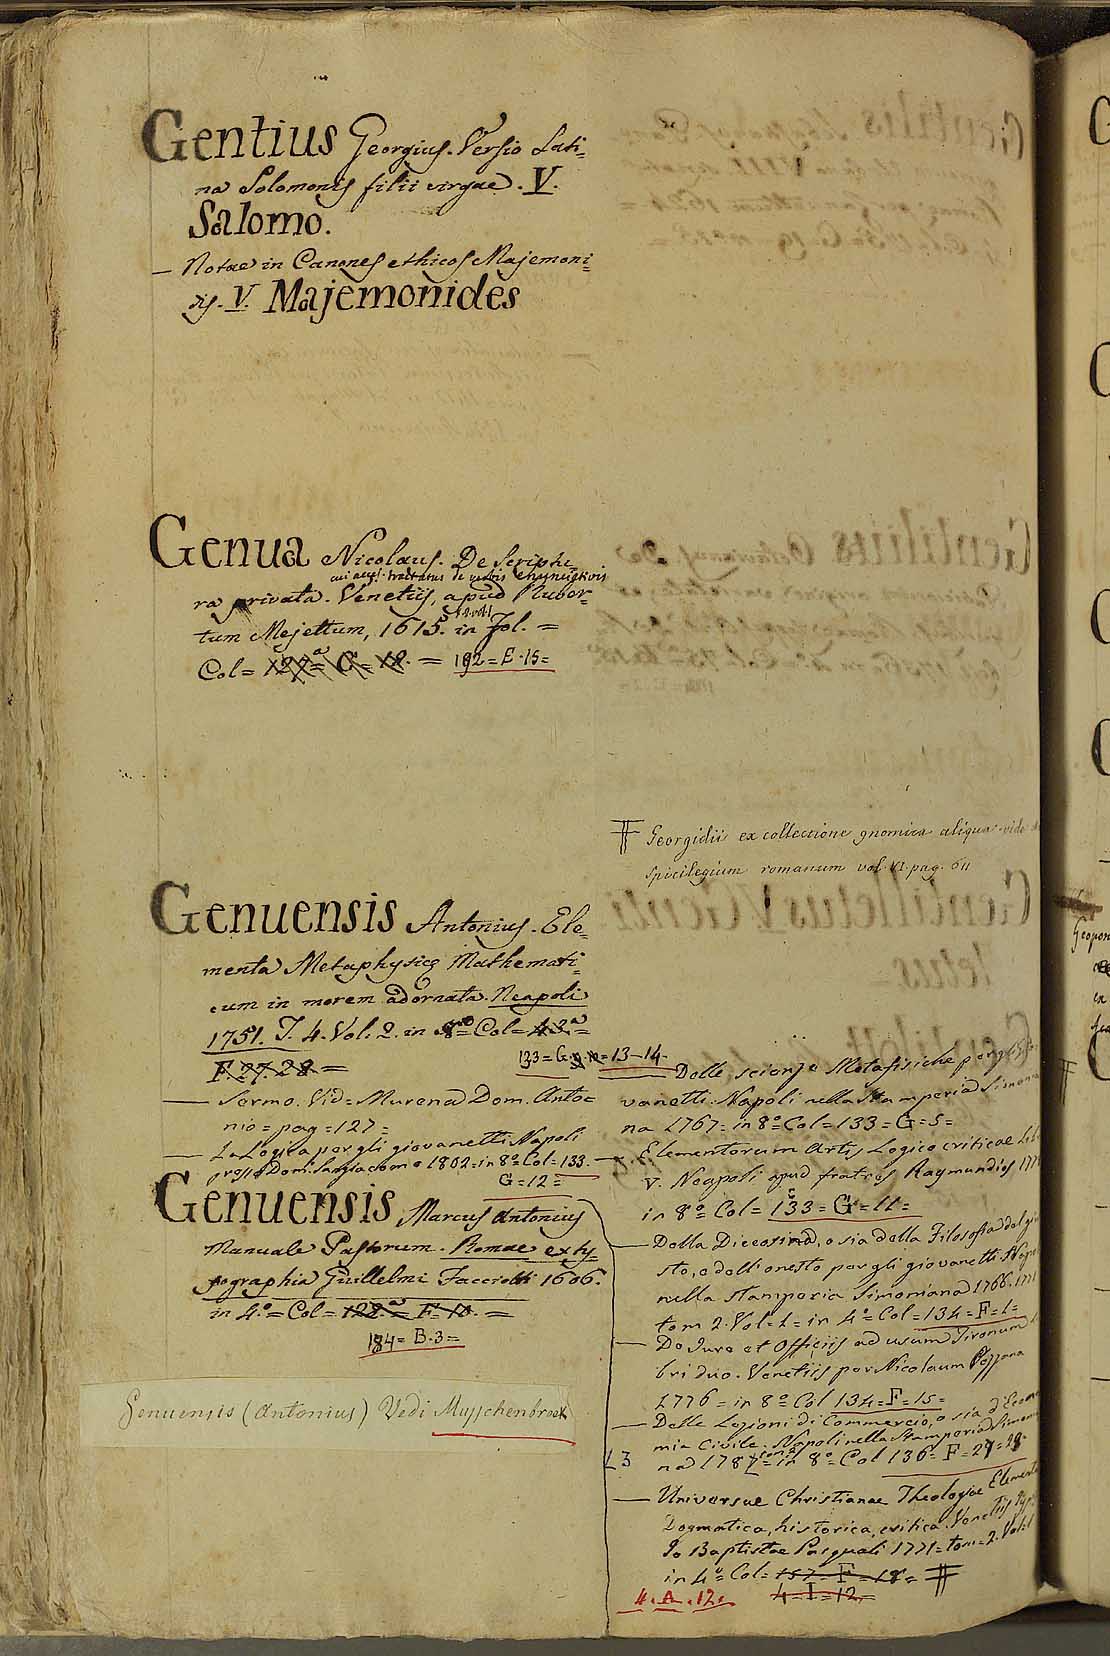 Gentius Georgius. Versio Lati=
na Solomonis filii virgae. V.
Salomo.
— Notae in Canones ethicos Majemoni=
dis. V. Majemonides
Genua Nicolaus. De Scriptu
cui acc.t tractatus de verbis enunciativis
ra privata. Venetiis, apud Rubor=
tum Mejettum, 1615. in fol. =
Col= 127=a G= 18. = 192=E.15=
Genuensis Antonius. Ele=
menta Metaphysicę Mathemati=
cum in morem adornata. Neapoli
1751. T. 4. Vol. 2. in 8º= Col= 43ª=
F. 27. 28=
133= G = 13-14-
— Sermo. Vid= Murena Dom. Anto=
nio= pag=127=
— La Logica per gli giovanetti Napoli
presso Dom. Sangiacomo 1802=in 8º=Col=133.
G=12=
Genuensis Marcus Antonius
Manuale Pastorum. Romae ex ty=
pographia Guillelmi Facciotti 1606.
in 4.º= Col= 122.ª= F. 10. =
184= B.3=
Genuensis (Antonius) Vedi Musschenbroek
Georgidii ex collectione gnomica aliqua vide
spicilegium romanum vol. VI. pag. 611
— Delle scienze Metafisiche per gli
vanetti. Napoli nella Stamperia Simonia
na 1767= in 8º Col=133=G=5=
— Elementorum Artis Logico criticae
V. Neapoli apud fratres Raymundios
in 8º= Col= 133= G=11=
— Della Diceosina, o sia della Filosofia del giu
sto, e dell'onesto per gli giovanetti
nella stamperia Simoniana 1766.
tom 2. Vol=1= in 4º= Col=134=F=1=
— De Jure et Officiis ad usum Tironum
bri duo. Venetiis per Nicolaum Pezzana
1776= in 8º Col 134=F=15=
— Delle Lezioni di Commercio, o sia d'Econo
mia Civile. Napoli nella Stamperia Simonia
13 na 178 = in 8º Col 136= F=27=28-
— Universae Christianae Theologiae Elementa
Dogmatica, historica, critica. Venetiis
Jo Baptistae Pasquali 1771= tom=2. Vol=1
in 4º Col= 157= F=18=
4=I=12=
4.A.12.